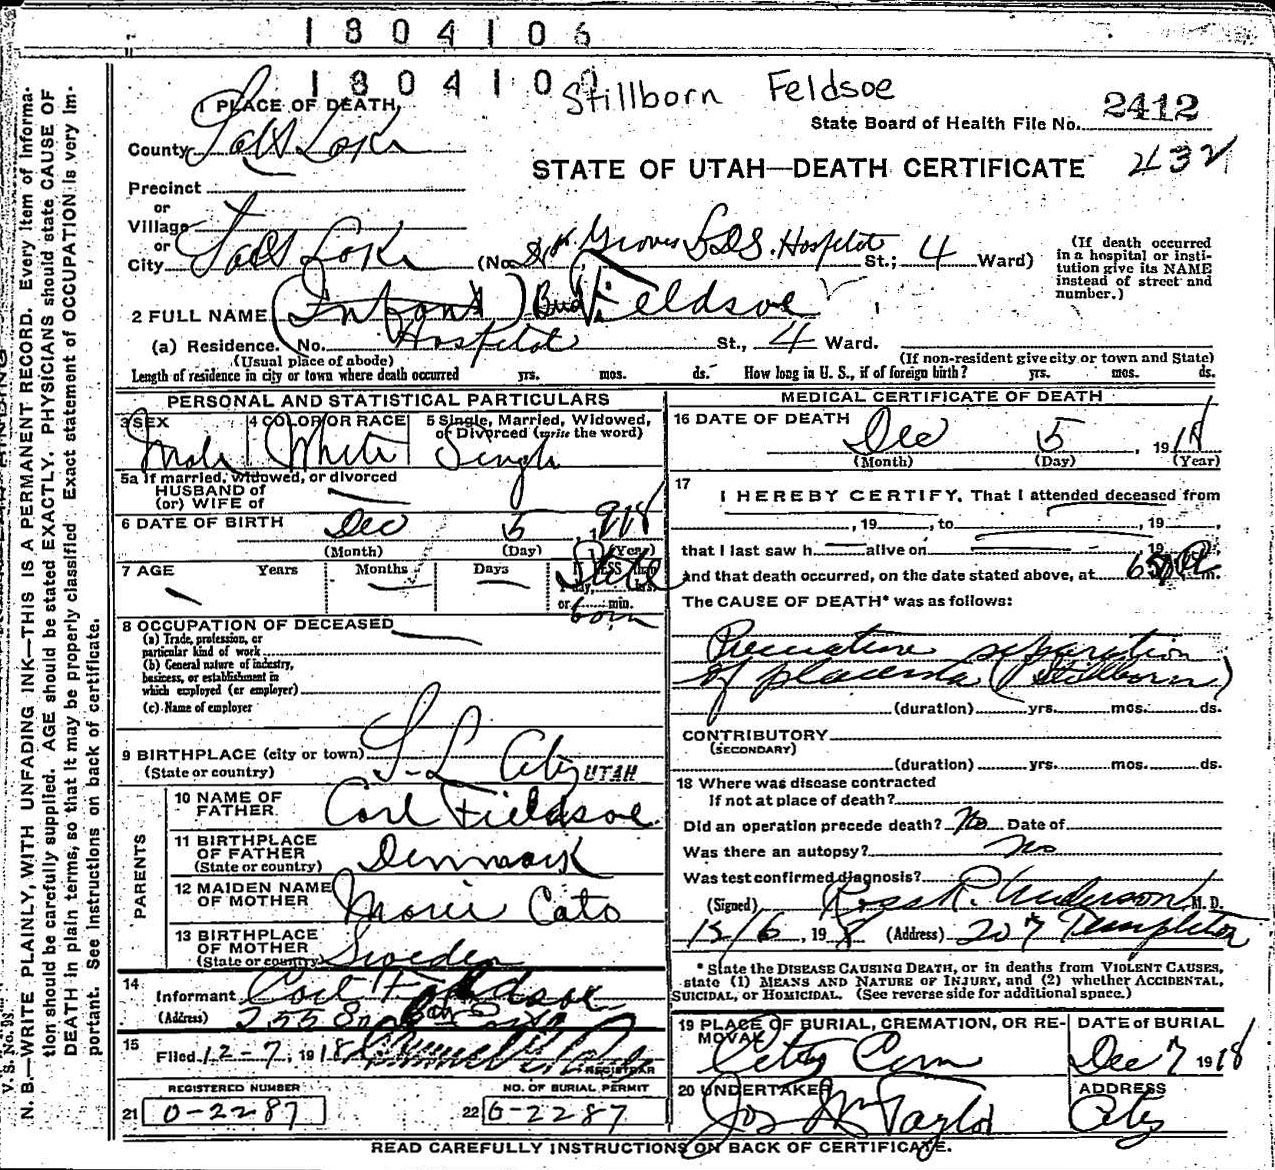 1804106
180410
Stillborn Feldsoe
1 PLACE OF DEATH
State Board of Health File No. 2412
County Salt Lake
STATE OF UTAH—DEATH CERTIFICATE 432
Precinct
or
Village
or
City Salt Lake (No. Groves L.D.S. Hospital St.; 4 Ward)
(If death occurred in a hospital or institution give its NAME instead of street and number.)
2 FULL NAME (Infant) Fieldsoe
(a) Residence. No. Hospital St., 4 Ward.
(Usual place of abode) (If non-resident give city or town and State)
Length of residence in city or town where death occurred yrs. mos. ds. How long in U. S., if of foreign birth? yrs. mos. ds.
PERSONAL AND STATISTICAL PARTICULARS
3 SEX Male
4 COLOR OR RACE White
5 Single, Married, Widowed, or Divorced (write the word) Single
5a If married, widowed, or divorced
HUSBAND of
(or) WIFE of
6 DATE OF BIRTH Dec 5, 1918
(Month) (Day) (Year)
7 AGE Years Months Days If LESS than 1 day, hrs. or min.
born
8 OCCUPATION OF DECEASED
(a) Trade, profession, or
particular kind of work
(b) General nature of industry,
business, or establishment in
which employed (or employer)
(c) Name of employer
9 BIRTHPLACE (city or town) S-L City
(State or country) UTAH
PARENTS
10 NAME OF FATHER Carl Fieldsoe
11 BIRTHPLACE OF FATHER (State or country) Denmark
12 MAIDEN NAME OF MOTHER Marie Cato
13 BIRTHPLACE OF MOTHER (State or country) Sweden
14 Informant Carl Fieldsoe
(Address) 2558
15 Filed 12-7, 1918 REGISTRAR
REGISTERED NUMBER NO. OF BURIAL PERMIT
21 0-2287 22 G-2287
MEDICAL CERTIFICATE OF DEATH
16 DATE OF DEATH Dec 5, 1918
(Month) (Day) (Year)
17 I HEREBY CERTIFY, That I attended deceased from
, 19 , to , 19 ,
that I last saw h alive on 19
and that death occurred, on the date stated above, at m.
The CAUSE OF DEATH* was as follows:
Premature separation
of placenta (Stillborn)
(duration) yrs. mos. ds.
CONTRIBUTORY
(SECONDARY)
(duration) yrs. mos. ds.
18 Where was disease contracted
If not at place of death?
Did an operation precede death? No Date of
Was there an autopsy? No
Was test confirmed diagnosis?
(Signed) Ross R. Anderson M. D.
12/6, 1918 (Address) 207 Templeton
* State the DISEASE CAUSING DEATH, or in deaths from VIOLENT CAUSES,
state (1) MEANS AND NATURE OF INJURY, and (2) whether ACCIDENTAL,
SUICIDAL, or HOMICIDAL. (See reverse side for additional space.)
19 PLACE OF BURIAL, CREMATION, OR REMOVAL City Cem
DATE of BURIAL Dec 7 1918
20 UNDERTAKER Jos Wm Taylor
ADDRESS City
READ CAREFULLY INSTRUCTIONS ON BACK OF CERTIFICATE.
V. S. No. 98.
N. B.—WRITE PLAINLY, WITH UNFADING INK—THIS IS A PERMANENT RECORD. Every item of informa-
tion should be carefully supplied. AGE should be stated EXACTLY. PHYSICIANS should state CAUSE OF
DEATH in plain terms, so that it may be properly classified. Exact statement of OCCUPATION is very im-
portant. See instructions on back of certificate.